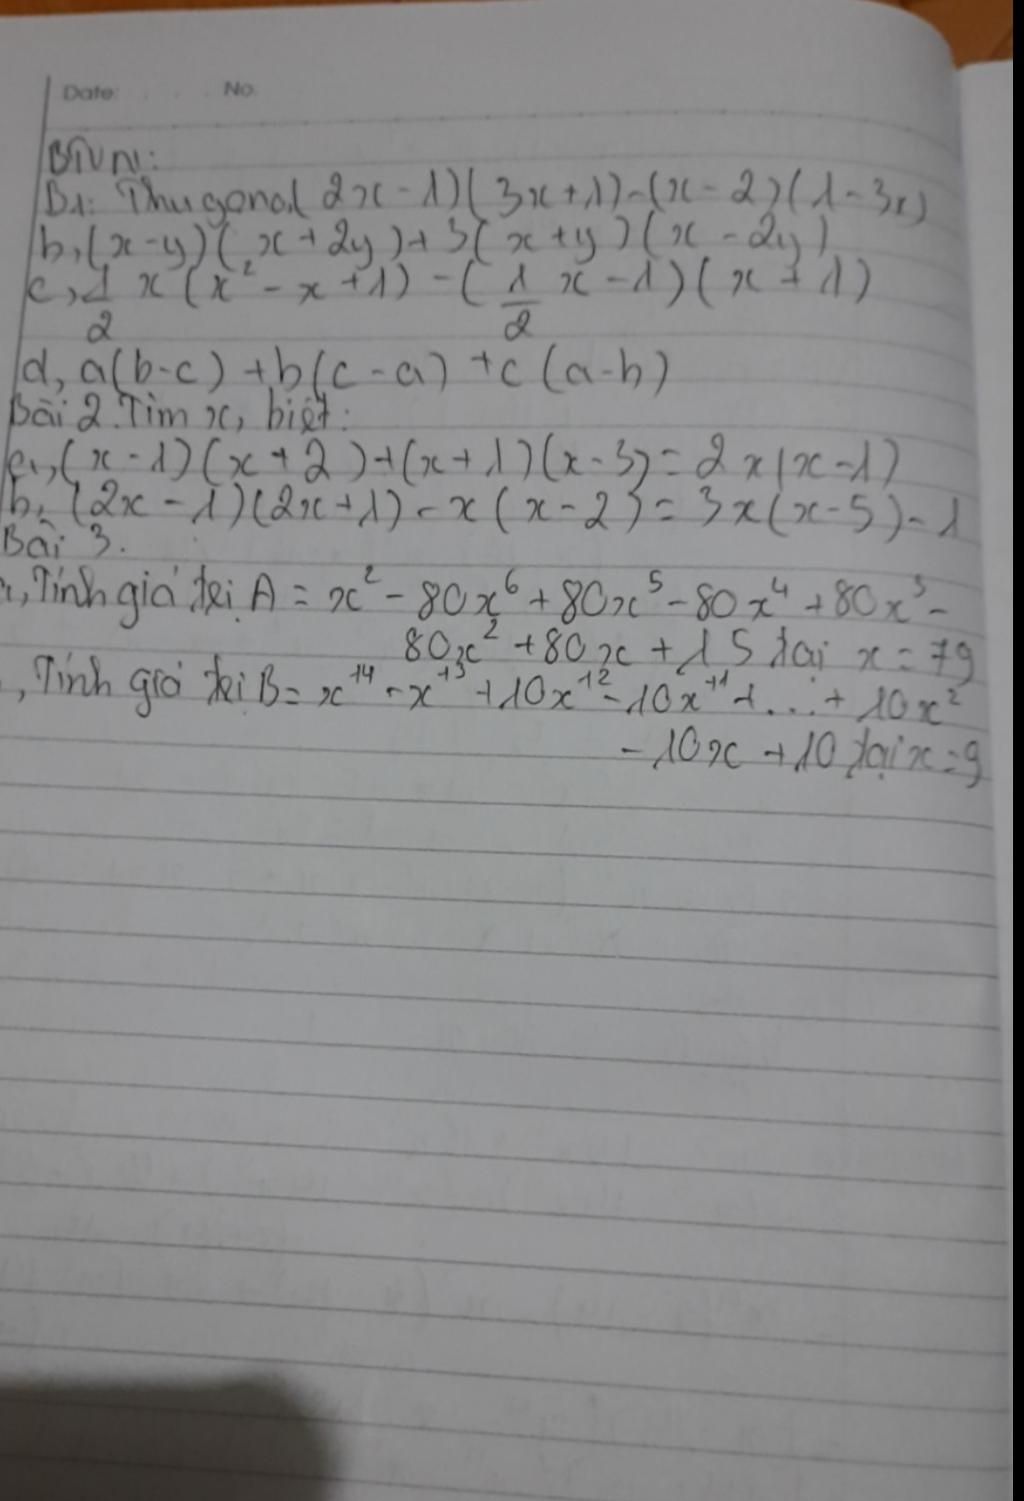 Date: . . . No.
BTVN:
B1: Thu gọn a,(2x-1)(3x+1)-(x-2)(1-3x)
b,(x-y)(x+2y)+3(x+y)(x-2y)
c, 1/2 x(x²-x+1)-(1/2 x-1)(x+1)
d, a(b-c)+b(c-a)+c(a-b)
Bài 2. Tìm x, biết:
a,(x-1)(x+2)+(x+1)(x-3)=2x(x-1)
b, (2x-1)(2x+1)-x(x-2)=3x(x-5)-1
Bài 3.
a, Tính giá trị A = x² - 80x⁶ + 80x⁵ - 80x⁴ + 80x³ -
80x² + 80x + 15 tại x = 79
, Tính giá trị B = x¹⁴ - x¹³ + 10x¹² - 10x¹¹ + ... + 10x²
- 10x + 10 tại x = 9